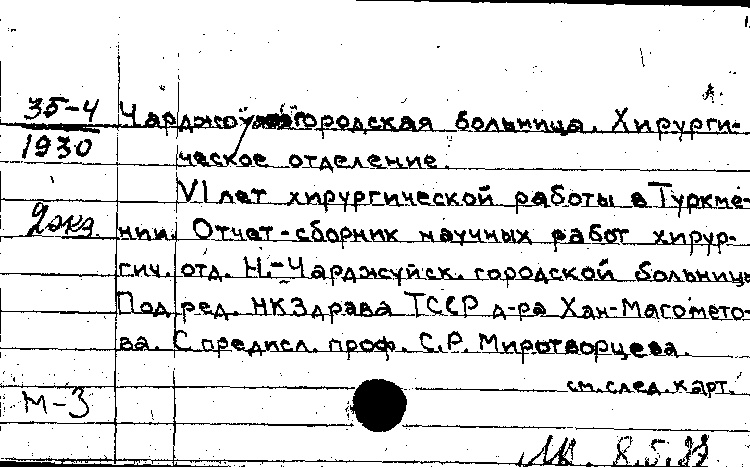 35-4
1930
2 экз.
М-3
Чарджоуская городская больница. Хирурги-
ческое отделение.
VI лет хирургической работы в Туркме-
нии. Отчет-сборник научных работ хирур-
гич. отд. Н.-Чарджуйск. городской больницы
Под ред. НКЗдрава ТССР д-ра Хан-Магомето-
ва. С предисл. проф. С.Р. Миротворцева.
см. след. карт.
8.5.